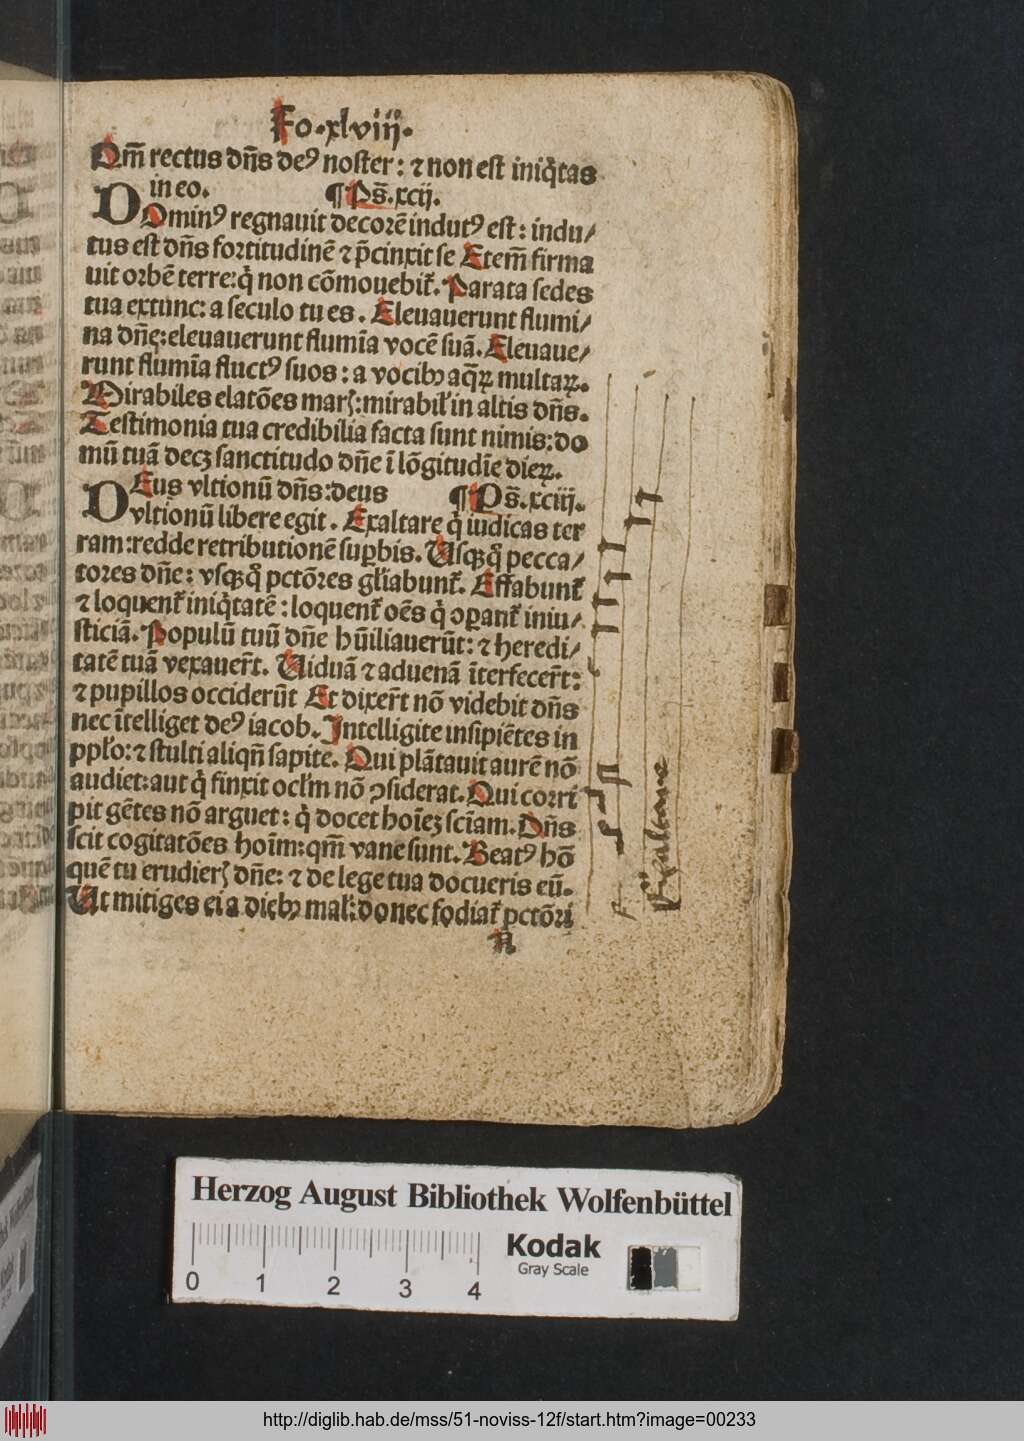 Fo.xlviij.
Qm̄ rectus dn̄s deꝰ noster: ⁊ non est iniq̇tas
in eo. ¶ Ps̄.xcij.
DOminꝰ regnauit decorē indutꝰ est: indu/
tus est dn̄s fortitudinē ⁊ p̄cinxit se Etem̄ firma
uit orbē terre: q̇ non cōmouebit̄. Parata sedes
tua extunc: a seculo tu es. Eleuauerunt flumi/
na dn̄ę: eleuauerunt flumīa vocē suā. Eleuaue/
runt flumīa fluctꝰ suos: a vocibꝫ aq̄ꝝ multaꝝ.
Mirabiles elatōes marꝭ: mirabil̄ in altis dn̄s.
Testimonia tua credibilia facta sunt nimis: do
mū tuā decꝫ sanctitudo dn̄e ī lōgitudīe dieꝝ.
DEus vltionū dn̄s: deus ¶ Ps̄.xciij.
vltionū libere egit. Exaltare q̇ iudicas ter
ram: redde retributionē suꝑbis. Usqꝫ q̊ pecca/
tores dn̄e: vsqꝫ q̊ pctōres gl̄iabunt̄. Effabunt̄
⁊ loquent̄ iniq̇tatē: loquent̄ oēs q̇ oꝑant̄ iniu/
sticiā. Populū tuū dn̄e hūiliauerūt: ⁊ heredi/
tatē tuā vexauer̄t. Uiduā ⁊ aduenā īterfecer̄t:
⁊ pupillos occiderūt Et dixer̄t nō videbit dn̄s
nec ītelliget deꝰ iacob. Intelligite insipiētes in
ppl̄o: ⁊ stulti aliqn̄ sapite. Qui plātauit aurē nō
audiet: aut q̇ finxit ocl̄m nō ꝯsiderat. Qui corri
pit gētes nō arguet: q̇ docet hoīeꝫ scīam. Dn̄s
scit cogitatōes hoīm: qm̄ vane sunt. Beatꝰ hō
quē tu erudierꝭ dn̄e: ⁊ de lege tua docueris eū.
Ut mitiges ei a diebꝫ mal̄: donec fodiat̄ pctōri
N
Exaltare
Herzog August Bibliothek Wolfenbüttel
0 1 2 3 4
Kodak
Gray Scale
http://diglib.hab.de/mss/51-noviss-12f/start.htm?image=00233